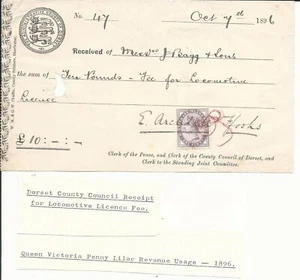 No. 47 Oct 7th 1896
Received of Messrs J Bagg & Sons
the sum of Ten Pounds - Fee for Locomotive
Licence
E. Arch Ffooks
£10:-:-
Clerk of the Peace, and Clerk of the County Council of Dorset, and
Clerk to the Standing Joint Committee.
Dorset County Council Receipt
for Locomotive Licence Fee.
Queen Victoria Penny Lilac Revenue Usage - 1896.